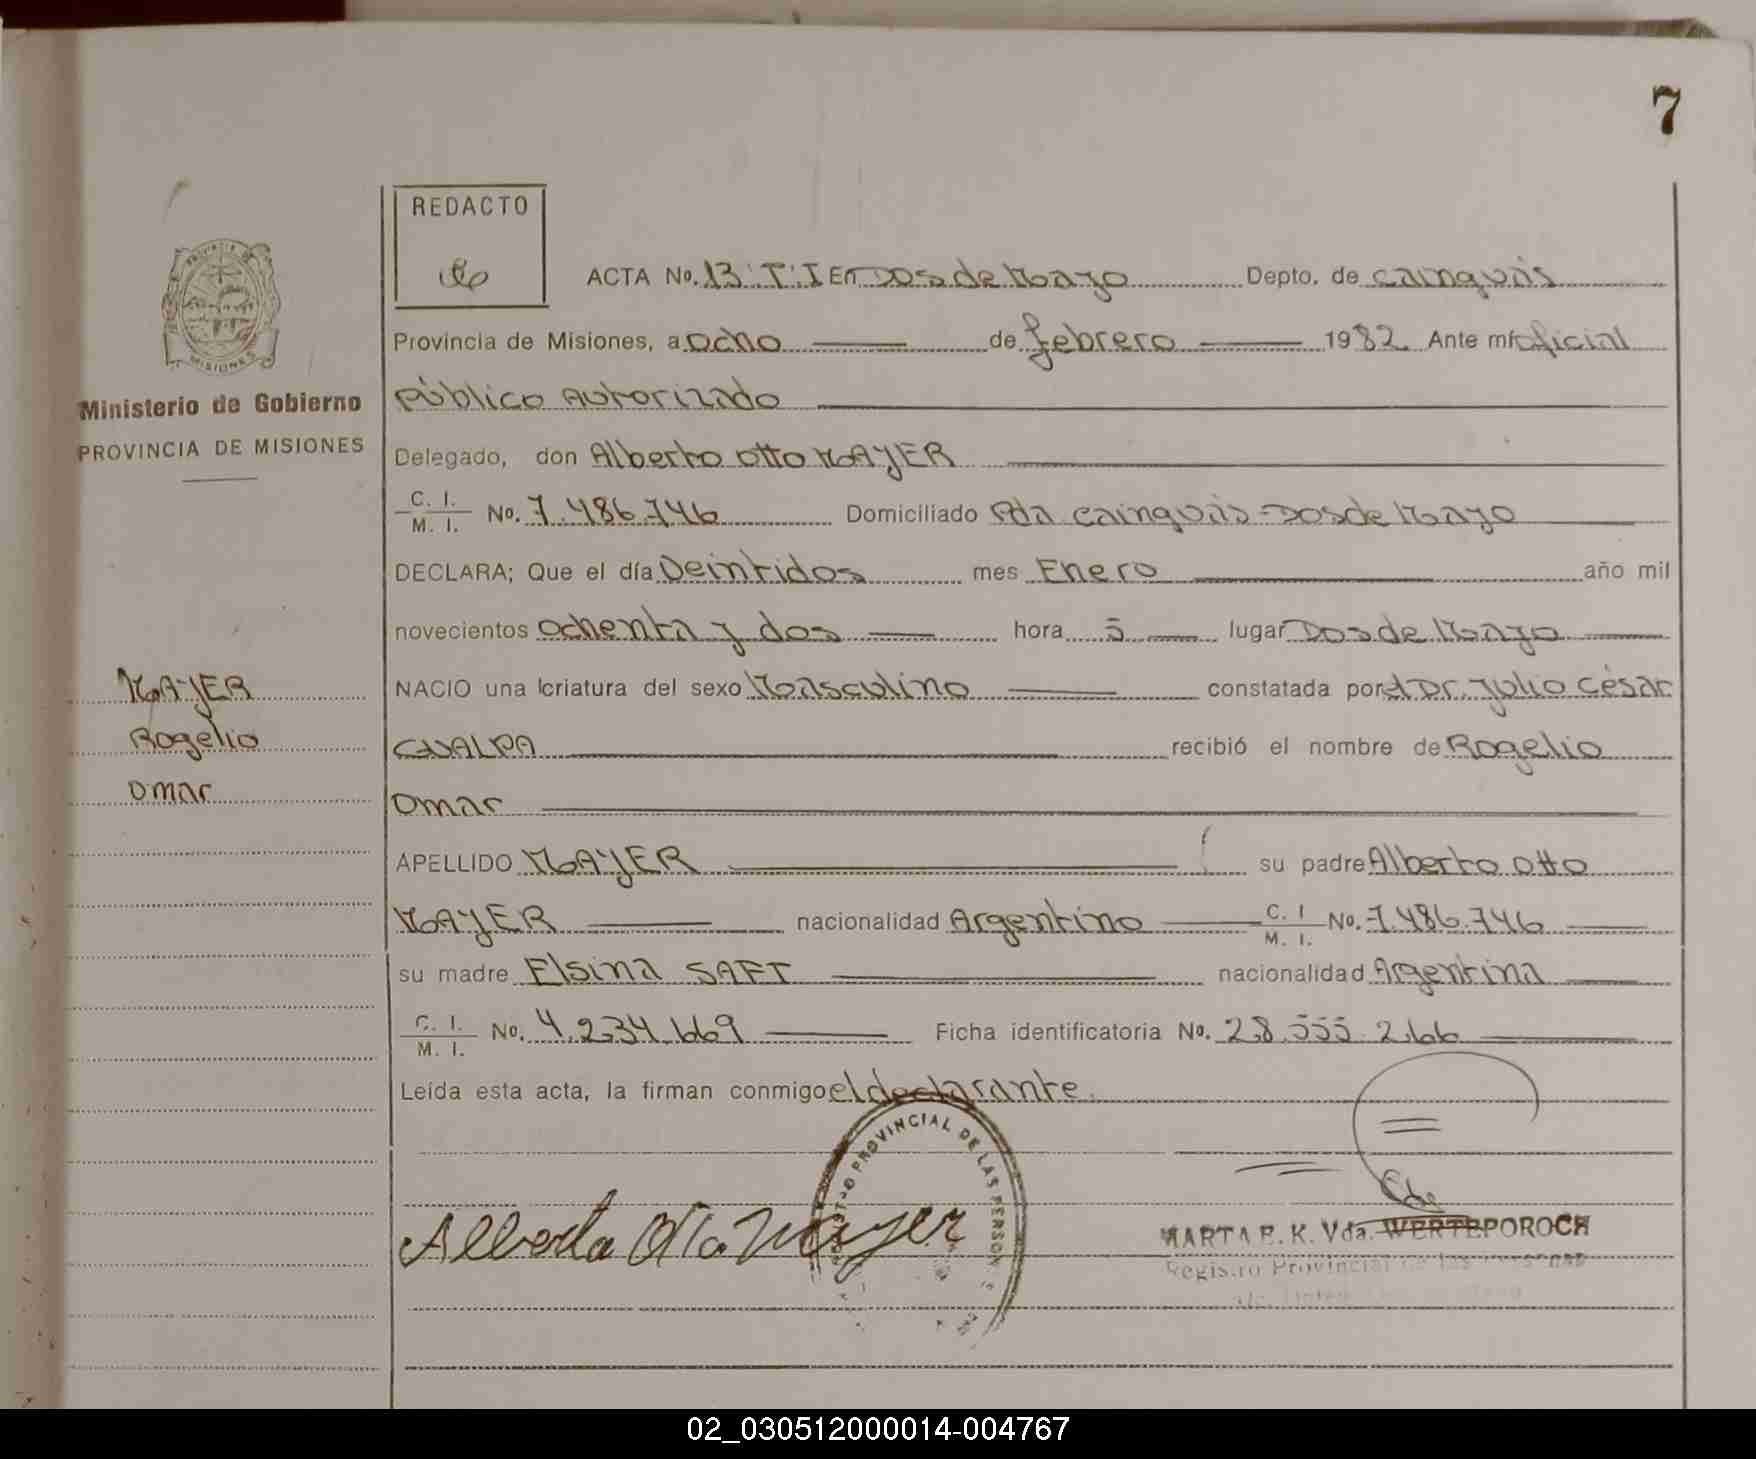 7
REDACTO
ACTA No. 13 T I En Dos de Mayo Depto. de Cainguás
Provincia de Misiones, a ocho de febrero 1982. Ante mí oficial
público autorizado
Delegado, don Alberto Otto MAYER
C. I. / M. I. No. 7.486.746 Domiciliado Pda Cainguás - Dos de Mayo
DECLARA; Que el día Veintidos mes Enero año mil
novecientos ochenta y dos hora 5 lugar Dos de Mayo
NACIO una criatura del sexo Masculino constatada por el Dr. Julio César
GUALPA recibió el nombre de Rogelio
Omar
APELLIDO MAYER su padre Alberto Otto
MAYER nacionalidad Argentino C. I / M. I. No. 7.486.746
su madre Elsina SAFT nacionalidad Argentina
C. I. / M. I. No. 4.234.669 Ficha identificatoria No. 28.555.266
Leída esta acta, la firman conmigo el declarante.
PROVINCIAL DE LAS PERSON
Alberto Otto Mayer
MARTA E. K. Vda. WERTEPOROCH
Registro Provincial de las
PROVINCIA DE
MISIONES
Ministerio de Gobierno
PROVINCIA DE MISIONES
MAYER
Rogelio
Omar
02_030512000014-004767